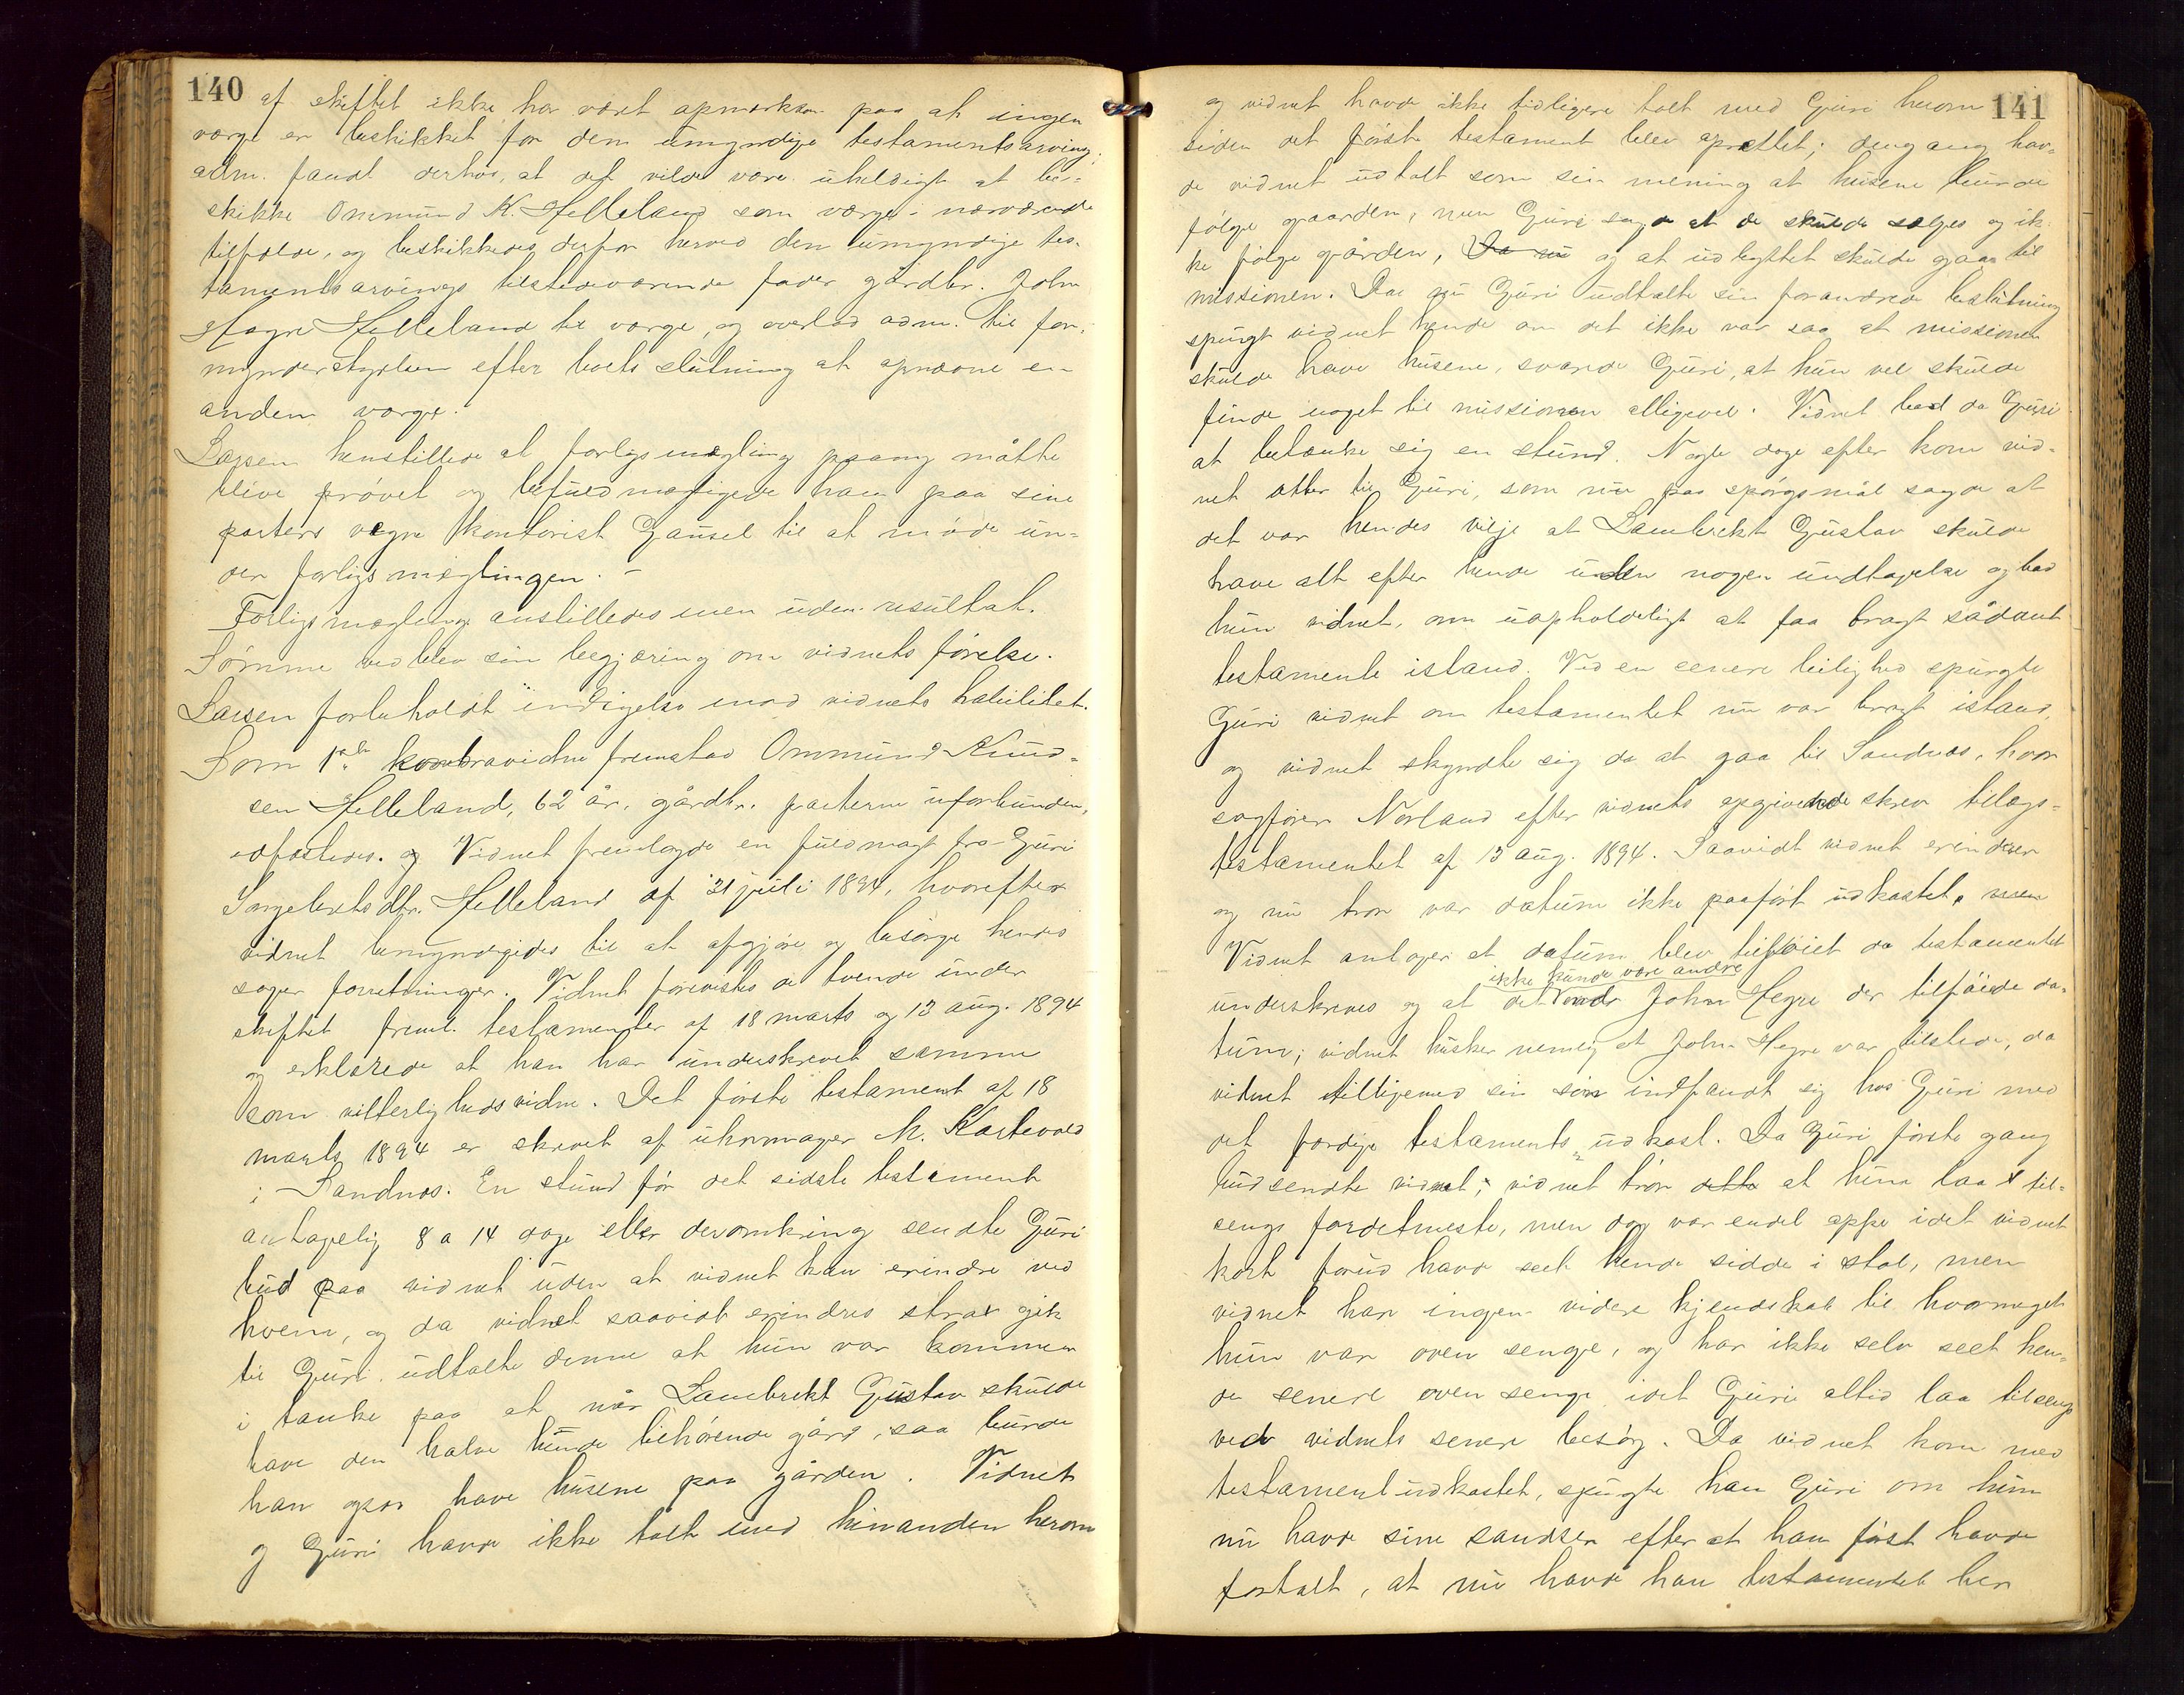 140
af skiftet ikke har været opmærksom paa at ingen
værge er beskikket for den umyndige testamentsarving;
adm. fandt derhos, at det vilde være uheldigt at be-
skikke Ommund K. Helleland som værge i nærværende
tilfælde, og beskikkedes derfor herved den umyndige tes-
tamentsarvings tilstedeværende fader gårdbr. John
Hegre Helleland til værge, og overlod adm. til for-
mynderstyrelsen efter boets slutning at opnævne en
anden værge.
Larsen henstillede at forligsmægling paany måtte
blive prøvet og befuldmægtigede han paa sine
parters vegne kontorist Gausel til at møde un-
der forligsmæglingen. -
Forligsmægling anstilledes men uden resultat.
Sømme vedblev sin begjæring om vidnets førelse.
Larsen forbeholdt indsigelse mod vidnets habilitet.
Som 1ste kontravidne fremstod Ommund Knud-
sen Helleland, 62 år, gårdbr. parterne uforbunden,
edfæstedes. og Vidnet fremlagde en fuldmagt fra Guri
Ingebretsdtr. Helleland af 31 juli 1894, hvorefter
vidnet bemyndigedes til at afgjøre og besørge hendes
sager forretninger. Vidnet forevistes de tvende under
skiftet freml. testamenter af 18 marts og 13 aug. 1894
og erklærede at han har underskrevet samme
som vitterlighedsvidne. Det første testament af 18
marts 1894 er skrevet af uhrmager M. Kartevold
i Sandnes. En stund før det sidste testament
antagelig 8 a 14 dage eller deromkring sendte Guri
bud paa vidnet uden at vidnet kan erindre ved
hvem, og da vidnet saavidt erindres strax gik
til Guri. udtalte denne at hun var kommen
i tanke paa at når Lambrekt Gustav skulde
have den halve hende tilhørende gård, saa burde
han ogsaa have husene paa gården. Vidnet
og Guri havde ikke talt med hinanden herom
141
og vidnet havde ikke tidligere talt med Guri herom
siden det første testament blev oprettet; dengang hav-
de vidnet udtalt som sin mening at husene burde
følge gaarden, men Guri sagde at de skulde sælges og ik-
ke følge gården, Da nu og at udbyttet skulde gaa til
missionen. Da nu Guri udtalte sin forandrede beslutning
spurgt vidnet hende om det ikke var saa at missionen
skulde have husene, svarede Guri, at hun vel skulde
finde noget til missionen alligevel. Vidnet bad da Guri
at betænke sig en stund. Nogle dage efter kom vid-
net atter til Guri, som nu paa spørgsmål sagde at
det var hendes vilje at Lambrekt Gustav skulde
have alt efter hende uden nogen undtagelse og bad
hun vidnet, om uopholdeligt at faa bragt sådant
testamente istand. Ved en senere leilighed spurgte
Guri vidnet om testamentet nu var bragt istand,
og vidnet skyndte sig da at gaa til Sandnes, hvor
sagfører Norland efter vidnets opgivende skrev tilægs-
testamentet af 13 aug. 1894. Saavidt vidnet erindrer
og nu tror var datum ikke paaført udkastet, men
Vidnet antager at datum blev tilføiet da testamentet
ikke kunde være andre
underskreves og at det end John Hegre der tilføiede da-
tum; vidnet husker nemlig at John Hegre var tilstede, da
vidnet tilligemed sin søn indfandt sig hos Guri med
det færdige testaments udkast. Da Guri første gang
budsendte vidnet; vidnet tror dette at hun laa til-
sengs fordetmeste, men dog var endel oppe idet vidnet
kort forud havde seet hende sidde i stol, men
vidnet har ingen videre kjendskab til hvormeget
hun var oven senge, og har ikke selv seet hen-
de senere oven senge idet Guri altid laa tilsengs
ved vidnets senere besøg. Da vidnet kom med
testamentudkastet, spurgte han Guri om hun
nu havde sine sandser efter at han først havde
fortalt, at nu havde han testamentet her